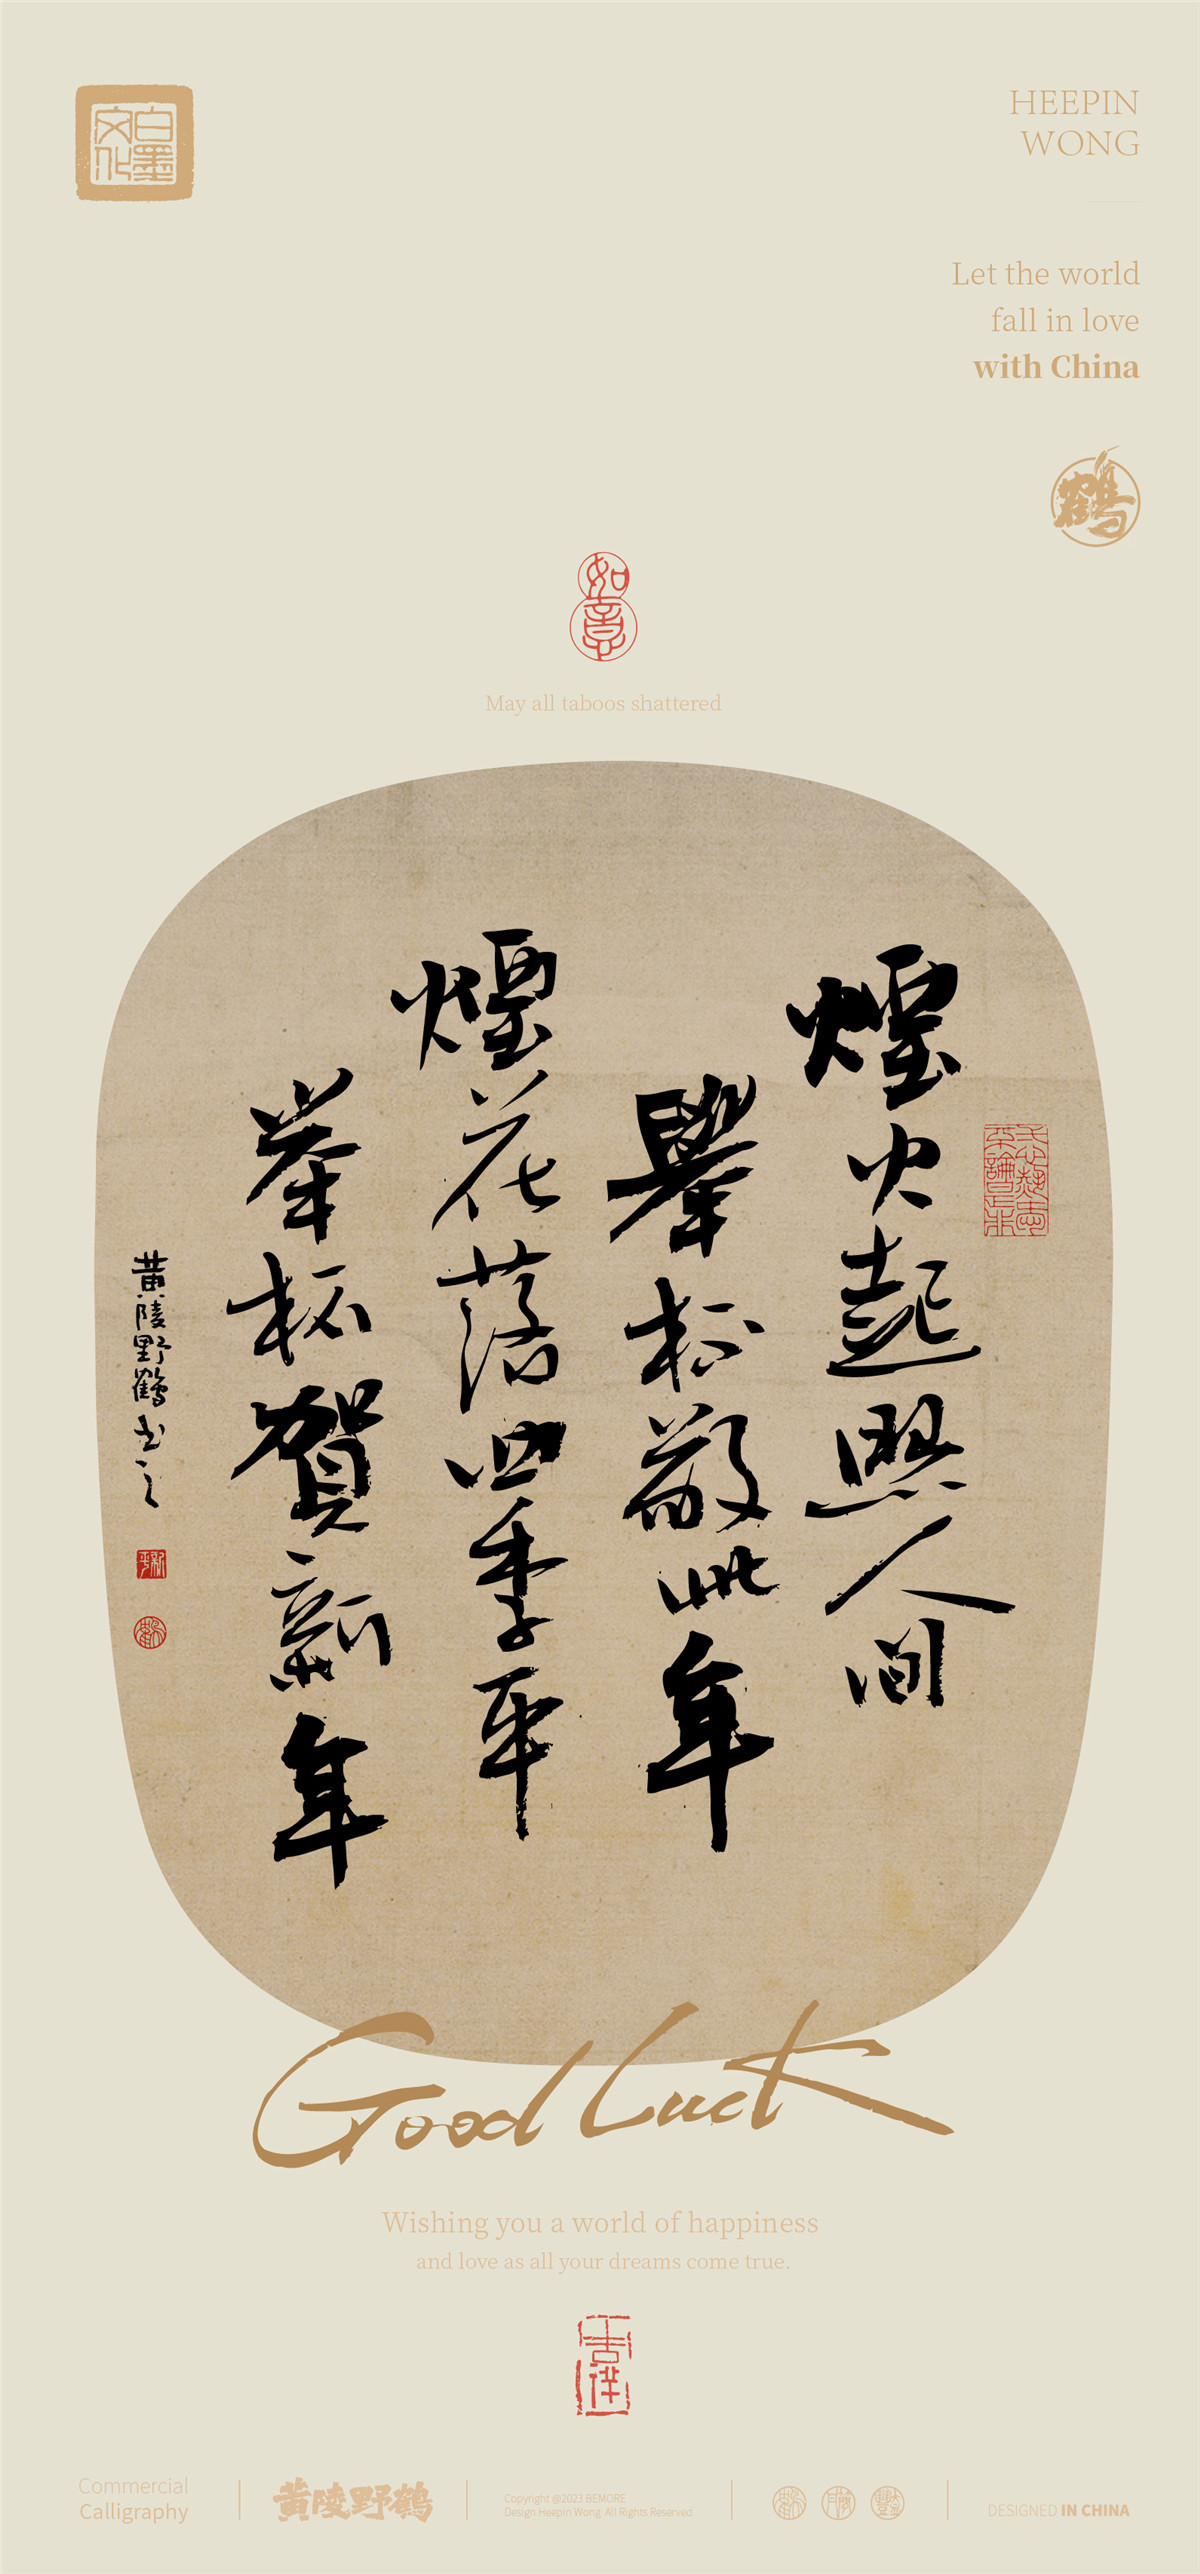 白墨
文化
HEEPIN
WONG
Let the world
fall in love
with China
鶴
如意
May all taboos shattered
煙火起照人间
舉杯敬此年
煙花落四季平
举杯贺新年
黄陵野鹤书之
Good Luck
Wishing you a world of happiness
and love as all your dreams come true.
吉祥
Commercial
Calligraphy
黄陵野鹤
Copyright @2023 BEMORE
Design Heepin Wong. All Rights Reserved
DESIGNED IN CHINA